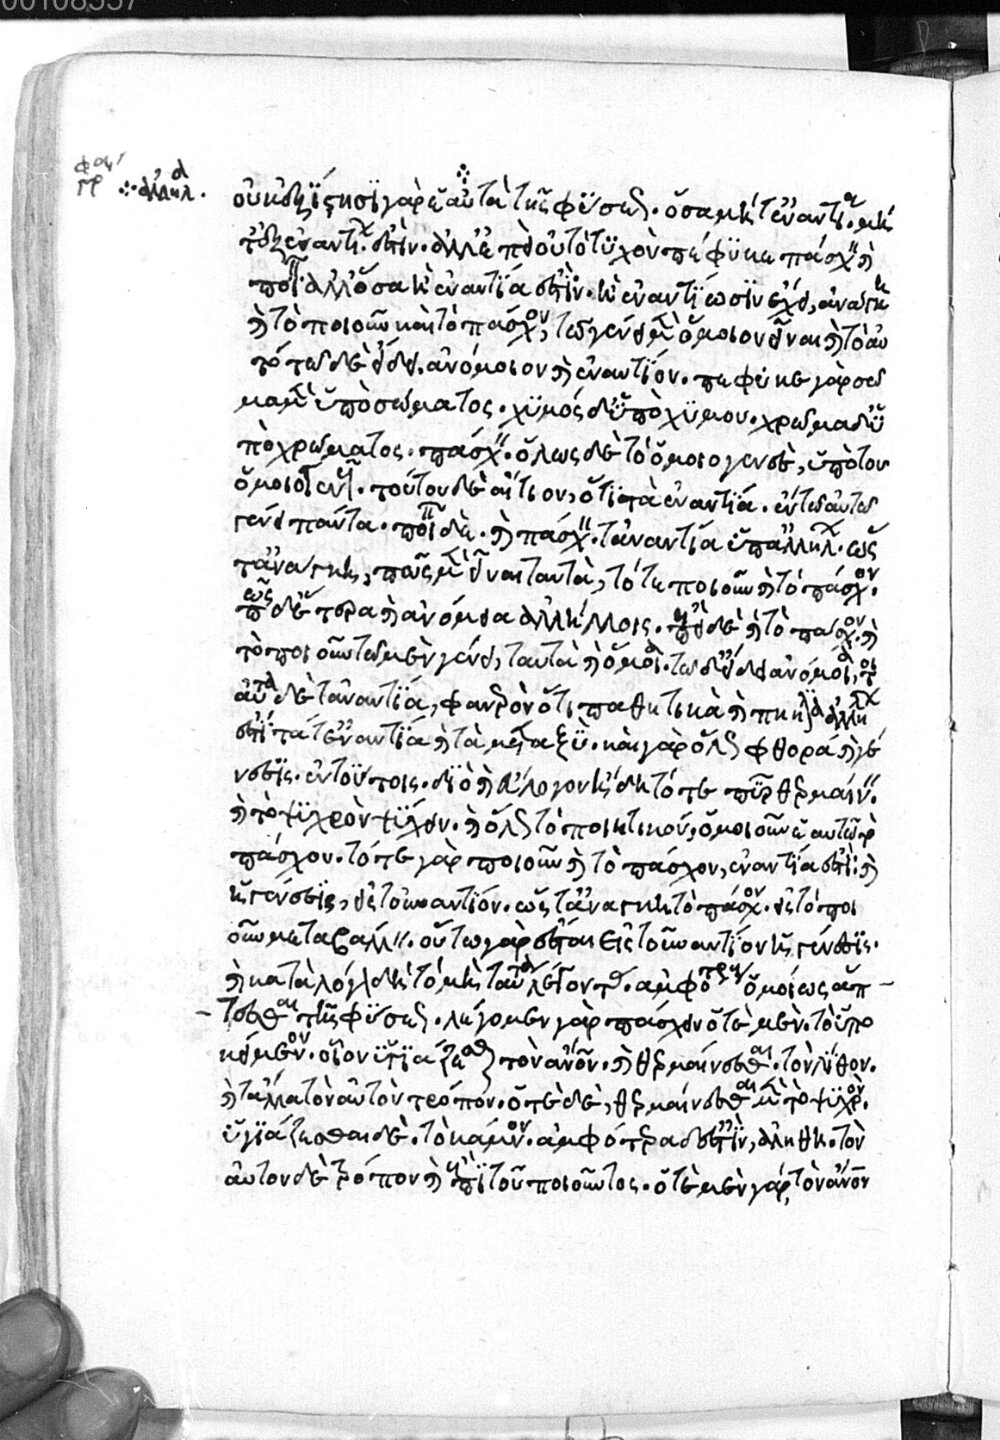 φαι
γρ ∴ ἀλληλα.
οὐκ ἐξίστησι γὰρ ἑαυτὰ τῆς φύσεως. ὅσα μήτ' ἐναντία. μή
τ' ἐξ ἐναντίων ἐστίν. ἀλλ' ἐπεὶ οὐ τὸ τυχὸν πέφυκε πάσχειν καὶ
ποιεῖν ἀλλ' ὅσα ἢ ἐναντία ἐστὶν. ἢ ἐναντίωσιν ἔχει, ἀνάγκη
καὶ τὸ ποιοῦν καὶ τὸ πάσχον, τῶ γένει μὲν ὅμοιον εἶναι καὶ τὸ αὐ
τό τῶ δὲ εἴδει. ἀνόμοιον καὶ ἐναντίον. πέφυκε γὰρ σῶ
μα μὲν ὑπὸ σώματος. χυμός δ' ὑπὸ χυμου. χρωμα δ' ὑ
πὸ χρωματος. πάσχειν. ὅλως δὲ τὸ ὁμοιογενὲς, ὑπὸ του
ὁμοιογενοῦς. τούτου δὲ αἴτιον, ὅτι τὰ ἐναντία. ἐν τῶ αὐτῶ
γένει πάντα. ποιεῖ δὲ. καὶ πάσχει. τἀναντία ὑπ' ἀλλήλων. ὥς
τ' ἀνάγκη, πῶς μὲν εἶναι ταυτὰ, τό τε ποιοῦν καὶ τὸ πάσχον.
πῶς δ' ἕτερα καὶ ἀνόμοια ἀλλήλοις. ἐπεὶ δὲ καὶ τὸ πάσχον. καὶ
τὸ ποιοῦν τῶ μὲν γένει, ταυτὰ καὶ ὅμοια. τῶ δ' εἴδει ἀνόμοια, τοι
αῦτα δὲ τἀναντία, φανερὸν ὅτι παθητικὰ καὶ ποιητικὰ ἀλλήλων
ἐστὶ τά τ' ἐναντία καὶ τὰ μεταξὺ. καὶ γὰρ ὅλως φθορά καὶ γέ
νεσις. ἐν τούτοις. διὸ καὶ εὔλογον ἤδη τό τε πῦρ θερμαίνειν.
καὶ τὸ ψυχρὸν ψύχειν. καὶ ὅλως τὸ ποιητικόν, ὁμοιοῦν ἑαυτῶ τὸ
πάσχον. τό τε γὰρ ποιοῦν καὶ τὸ πάσχον, ἐναντία ἐστὶ. καὶ
ἡ γένεσις, εἰς τοὐναντίον. ὥς τ' ἀνάγκη τὸ πάσχον. εἰς τὸ ποι
οῦν μεταβάλλειν. οὕτω γὰρ ἔσται εἰς τοὐναντίον ἡ γένεσις.
καὶ κατὰ λόγον δὴ τὸ μὴ ταυτὰ λέγοντας. ἀμφοτέρους ὁμοίως ἅπ
τεσθαι τῆς φύσεως. λέγομεν γὰρ πάσχειν ὁτὲ μὲν. τὸ ὑπο
κείμενον. οἷον ὑγιάζεσθαι τὸν ἄνον. καὶ θερμαίνεσθαι. τὸν λίθον.
καὶ τἆλλα τὸν αὐτὸν τρόπον. ὁτὲ δὲ, θερμαίνεσθαι μὲν τὸ ψυχρὸν.
ὑγιάζεσθαι δὲ. τὸ κάμνον. ἀμφότερα δ' ἐστὶν, ἀληθῆ. τὸν
αὐτον δὲ τρόπον καὶ ἐπὶ τοῦ ποιοῦντος. ὁτὲ μὲν γάρ, τὸν ἄνον